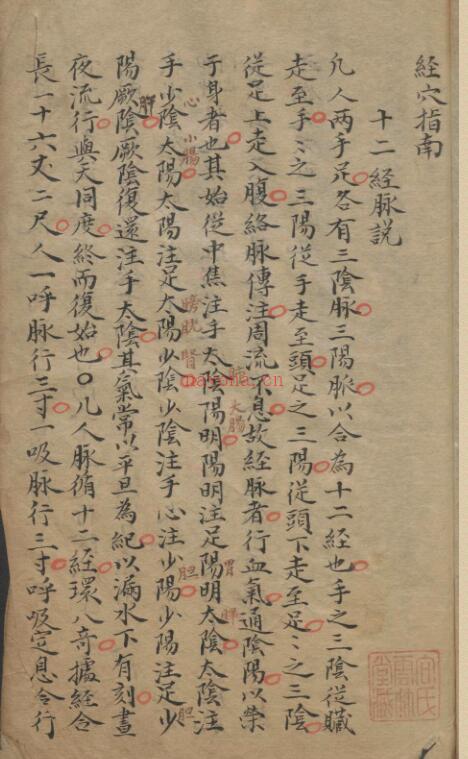 經穴指南
十二經脉説
凡人两手足各有三陰脉三陽脉以合為十二經也手之三陰從臓
走至手〻之三陽從手走至頭足之三陽從頭下走至足〻之三陰
從足上走入腹絡脉傳注周流不息故經脉者行血氣通陰陽以榮
于身者也其始從中焦注手太陰陽明陽明注足陽明太陰太陰注
手少陰太陽太陽注足太陽少陰少陰注手心注少陽少陽注足少
陽厥陰厥陰復還注手太陰其氣常以平旦為紀以漏水下有刻晝
夜流行與天同度終而復始也〇凡人脉循十二經環八奇據經合
長一十六丈二尺人一呼脉行三寸一吸脉行三寸呼吸定息合行
大腸
胃
脾
心
小腸
膀胱
腎
胆
胆